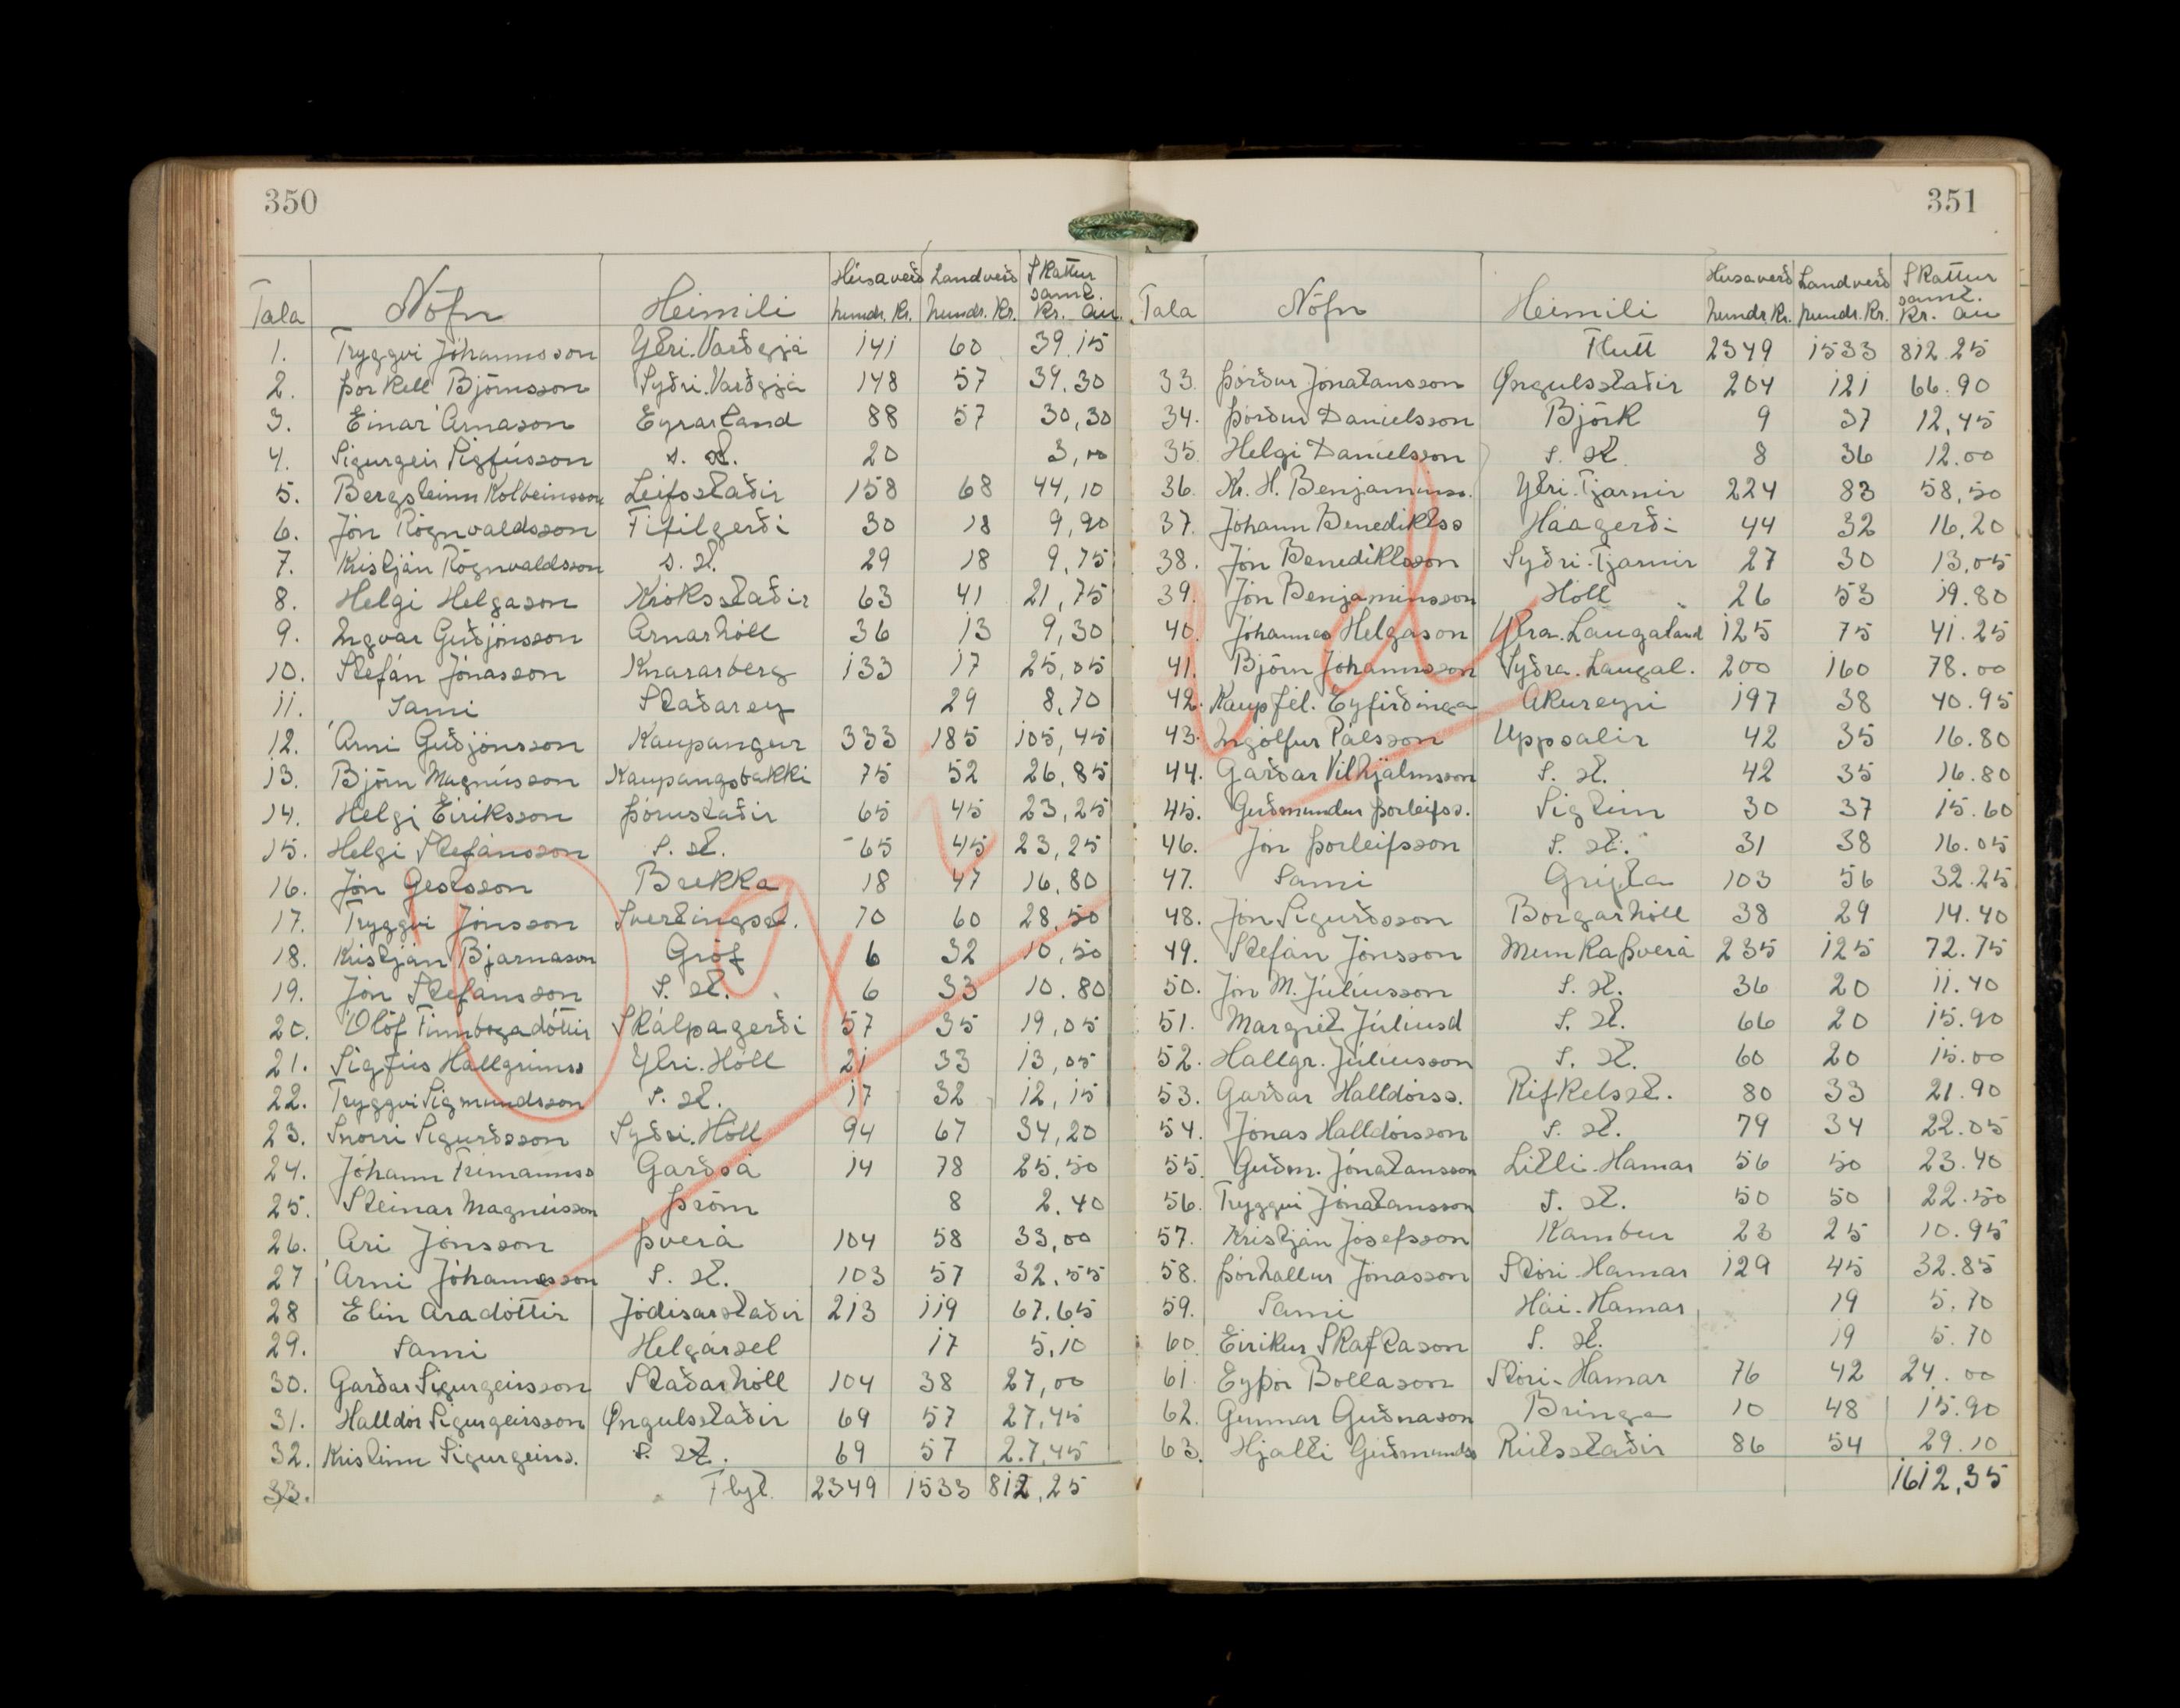 350
Tala Nöfn Heimili Húsaverð hundr. Kr. Landverð hundr. Kr. Skattur saml. Kr. au.
1. Tryggvi Jóhannsson Ytri-Varðgjá 141 60 39.15
2. Þorkell Björnsson Syðri-Varðgjá 148 57 39.30
3. Einar Árnason Eyrarland 88 57 30,30
4. Sigurgeir Sigfússon s. st. 20 3,00
5. Bergsteinn Kolbeinsson Leifsstaðir 158 68 44,10
6. Jón Rögnvaldsson Fífilgerði 30 18 9,90
7. Kristján Rögnvaldsson s. st. 29 18 9,75
8. Helgi Helgason Króksstaðir 63 41 21,75
9. Ingvar Guðjónsson Arnarhóll 36 13 9,30
10. Stefán Jónasson Knararberg 133 17 25,05
11. Sami Staðarey 29 8,70
12. Árni Guðjónsson Kaupangur 333 185 105,45
13. Björn Magnússon Kaupangsbakki 75 52 26,85
14. Helgi Eiríksson Þórustaðir 65 45 23,25
15. Helgi Stefánsson S. st. 65 45 23,25
16. Jón Gestsson Brekka 18 47 16,80
17. Tryggvi Jónsson Svertingsst. 70 60 28,50
18. Kristján Bjarnason Gröf 6 32 10,50
19. Jón Stefánsson S. st. 6 33 10.80
20. Ólöf Finnbogadóttir Skálpagerði 57 35 19,05
21. Sigfús Hallgrímss Ytri-Hóll 21 33 13,05
22. Tryggvi Sigmundsson S. st. 17 32 12,15
23. Snorri Sigurðsson Syðri-Hóll 94 67 34,20
24. Jóhann Frímannss Garðsá 14 78 25.50
25. Steinar Magnússon Þröm 8 2.40
26. Ari Jónsson Þverá 104 58 33,00
27 Árni Jóhannesson S. st. 103 57 32.55
28 Elín Aradóttir Jódísarstaðir 213 119 67.65
29. Sami Helgársel 17 5,10
30. Garðar Sigurgeirsson Staðarhóll 104 38 27,00
31. Halldór Sigurgeirsson Öngulsstaðir 69 57 27,45
32. Kristinn Sigurgeirss. S. st. 69 57 27,45
33. Flyt 2349 1533 812,25
351
Tala Nöfn Heimili Húsaverð hundr. Kr. Landverð hundr. Kr. Skattur saml. Kr. au
Flutt 2349 1533 812.25
33. Þórður Jónatansson Öngulsstaðir 204 121 66.90
34. Þórður Daníelsson Björk 9 37 12,45
35. Helgi Daníelsson S. st. 8 36 12.00
36. Kr. H. Benjamínss. Ytri-Tjarnir 224 83 58,50
37. Jóhann Benediktss Háagerði 44 32 16,20
38. Jón Benediktsson Syðri-Tjarnir 27 30 13,05
39. Jón Benjamínsson Hóll 26 53 19.80
40. Jóhannes Helgason Ytra-Laugaland 125 75 41.25
41. Björn Jóhannsson Syðra-Laugal. 200 160 78.00
42. Kaupfél. Eyfirðinga Akureyri 197 38 40.95
43. Ingólfur Pálsson Uppsalir 42 35 16.80
44. Garðar Vilhjálmsson S. st. 42 35 16.80
45. Guðmundur Þorleifss. Sigtún 30 37 15.60
46. Jón Þorleifsson S. st. 31 38 16.05
47. Sami Grýta 103 56 32.25
48. Jón Sigurðsson Borgarhóll 38 29 14.40
49. Stefán Jónsson Munkaþverá 235 125 72.75
50. Jón M. Júlíusson S. st. 36 20 11.40
51. Margrét Júlíusd S. st. 66 20 15.90
52. Hallgr. Júlíusson S. st. 60 20 15.00
53. Garðar Halldórss. Rifkelsst. 80 33 21.90
54. Jónas Halldórsson S. st. 79 34 22.05
55. Guðm. Jónatansson Litli-Hamar 56 50 23.40
56. Tryggvi Jónatansson S. st. 50 50 22.50
57. Kristján Jósefsson Kambur 23 25 10.95
58. Þórhallur Jónasson Stóri-Hamar 129 45 32.85
59. Sami Hái-Hamar 19 5.70
60. Eiríkur Skaftason S. st. 19 5.70
61. Eyþór Bollason Stóri-Hamar 76 42 24.00
62. Gunnar Guðnason Bringa 10 48 15.90
63. Hjalti Guðmunds Rútsstaðir 86 54 29.10
1612,35